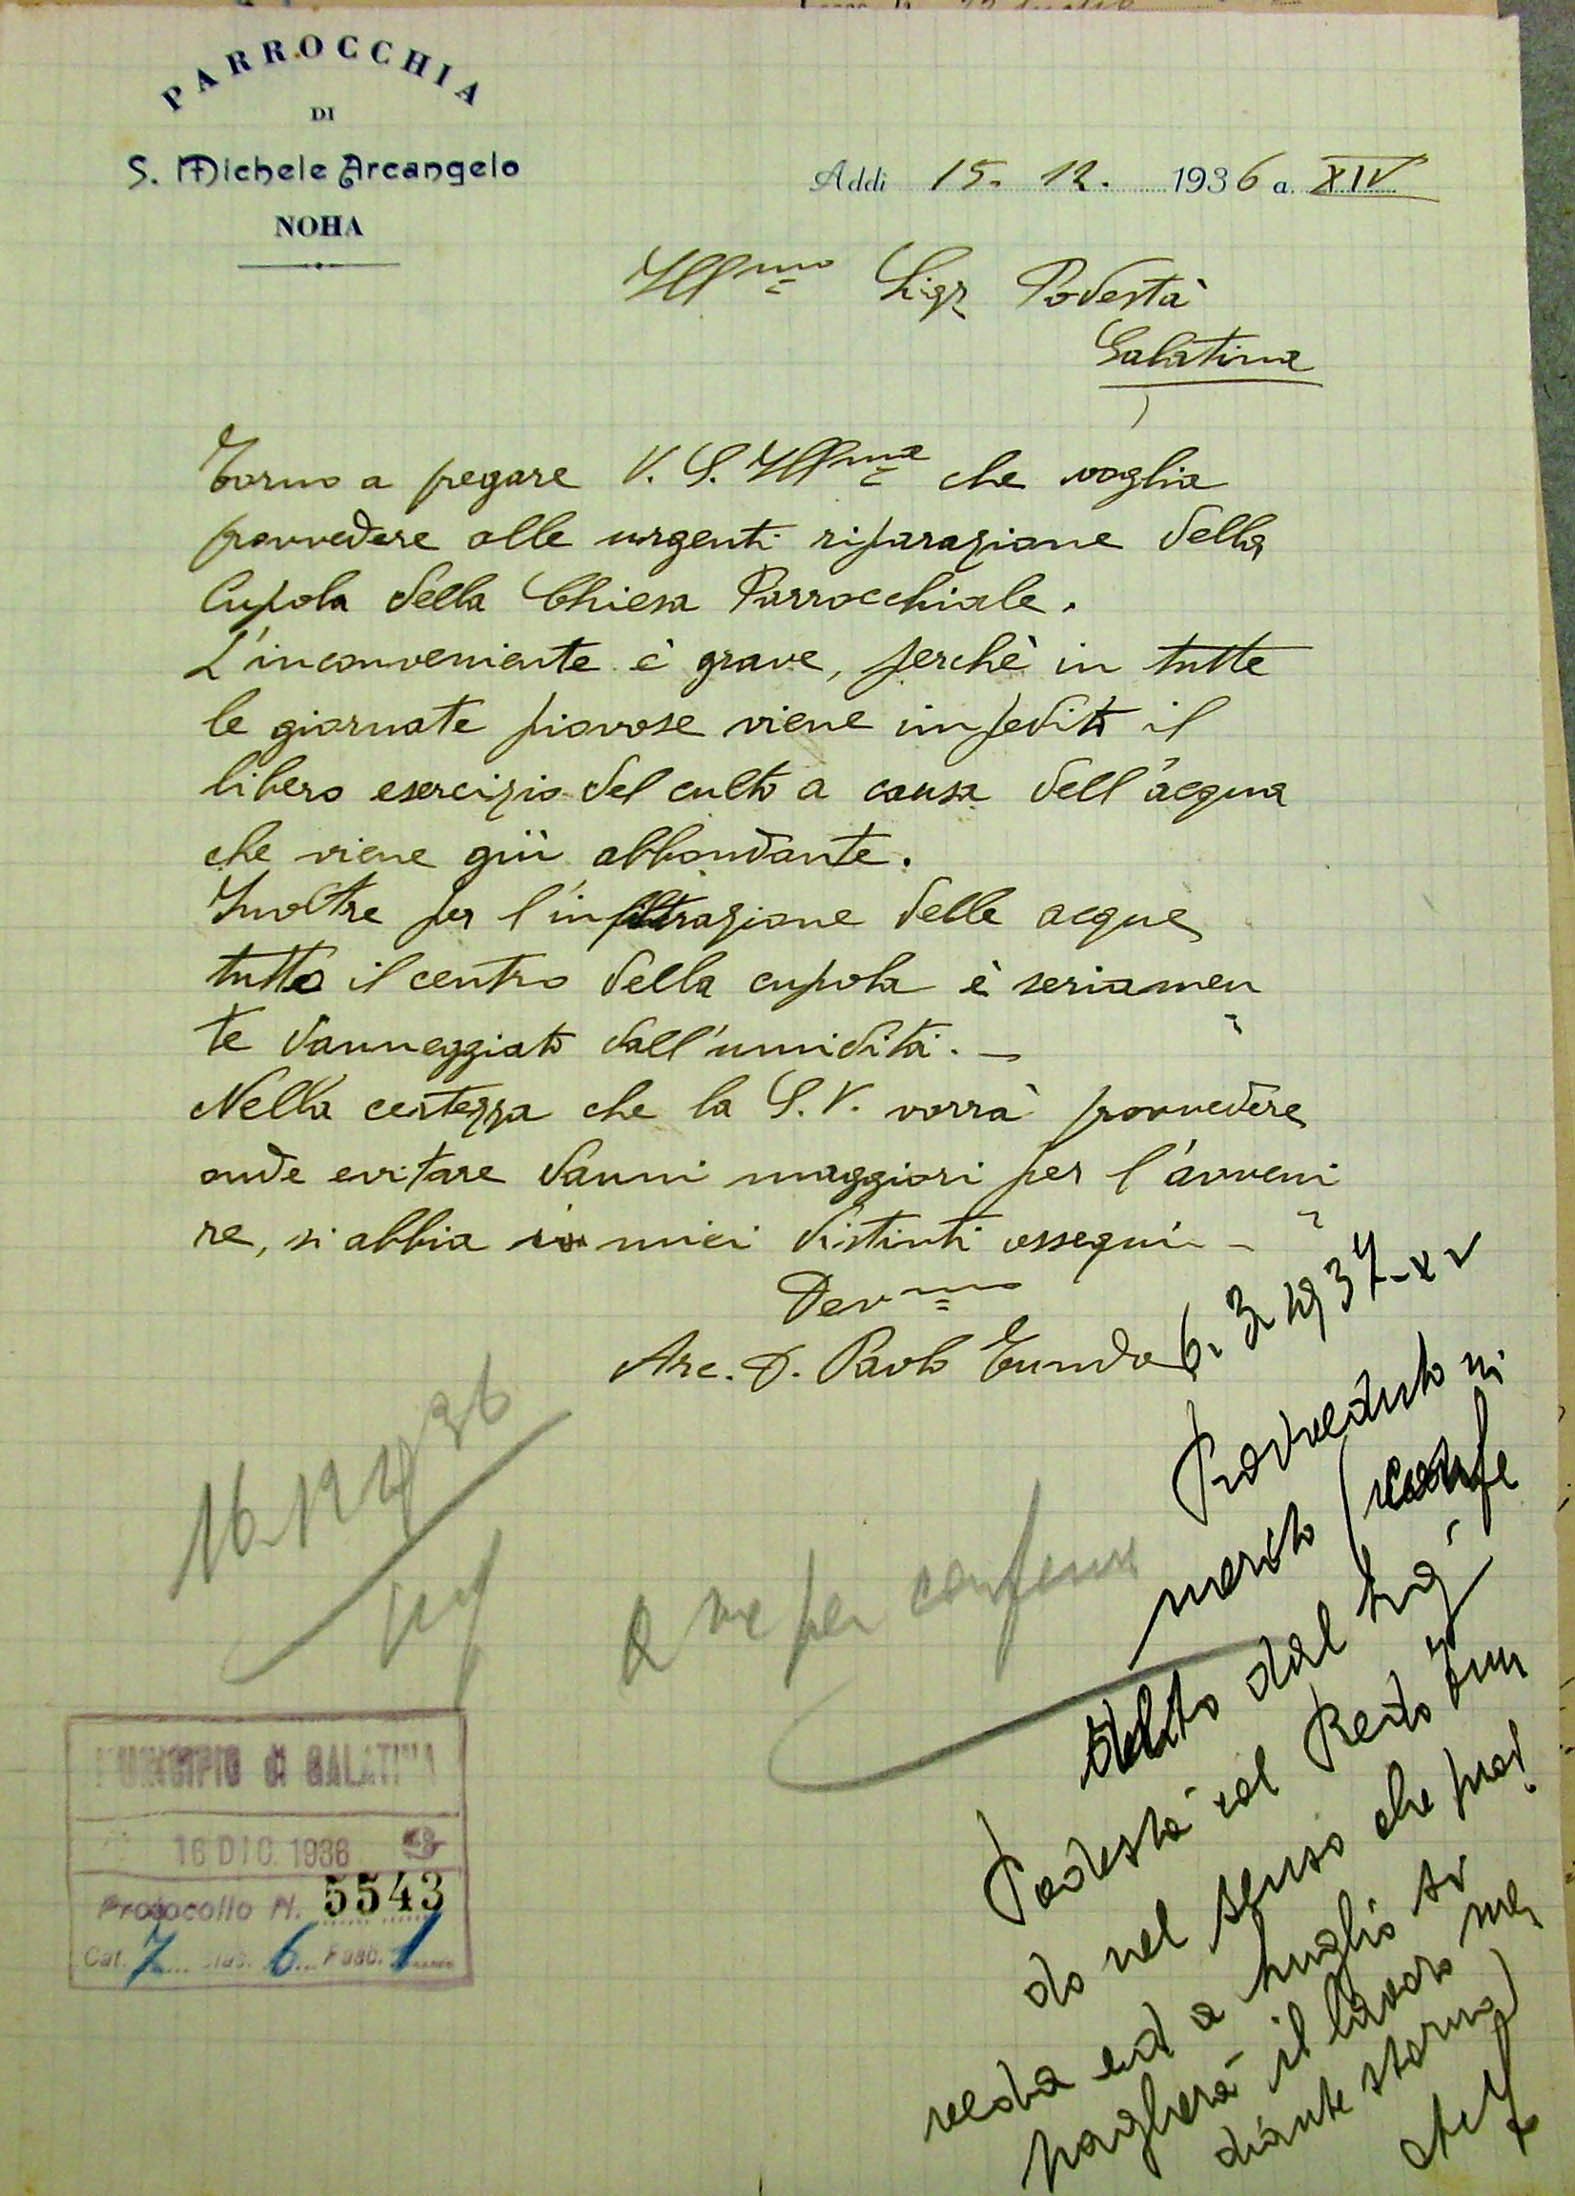 PARROCCHIA
DI
S. Michele Arcangelo
NOHA
Addì 15. 12. 1936 a. XIV
Ill.mo Sigr Podestà
Galatina
Torno a pregare V. S. Ill.ma che voglia
provvedere alle urgenti riparazione della
Cupola della Chiesa Parrocchiale.
L'inconveniente è grave, perchè in tutte
le giornate piovose viene impedito il
libero esercizio del culto a causa dell'acqua
che viene giù abbondante.
Inoltre per l'infiltrazione delle acque
tutto il centro della cupola è seriamen
te danneggiato dall'umidità. —
Nella certezza che la S. V. vorrà provvedere
onde evitare danni maggiori per l'avveni
re, si abbia i miei distinti ossequi —
Dev.mo
Arc. D. Paolo Tundo
6. 3. 1937-XV
Provveduto in
merito
dal Sig.
Podestà col Perito
do nel senso che prov
veda ed a luglio si
pagherà il lavoro me
diante storno)
16.12.1936
a me per conferire
MUNICIPIO di GALATINA
16 DIC. 1936
Protocollo N. 5543
Cat. 7 Clas. 6 Fasc. 1